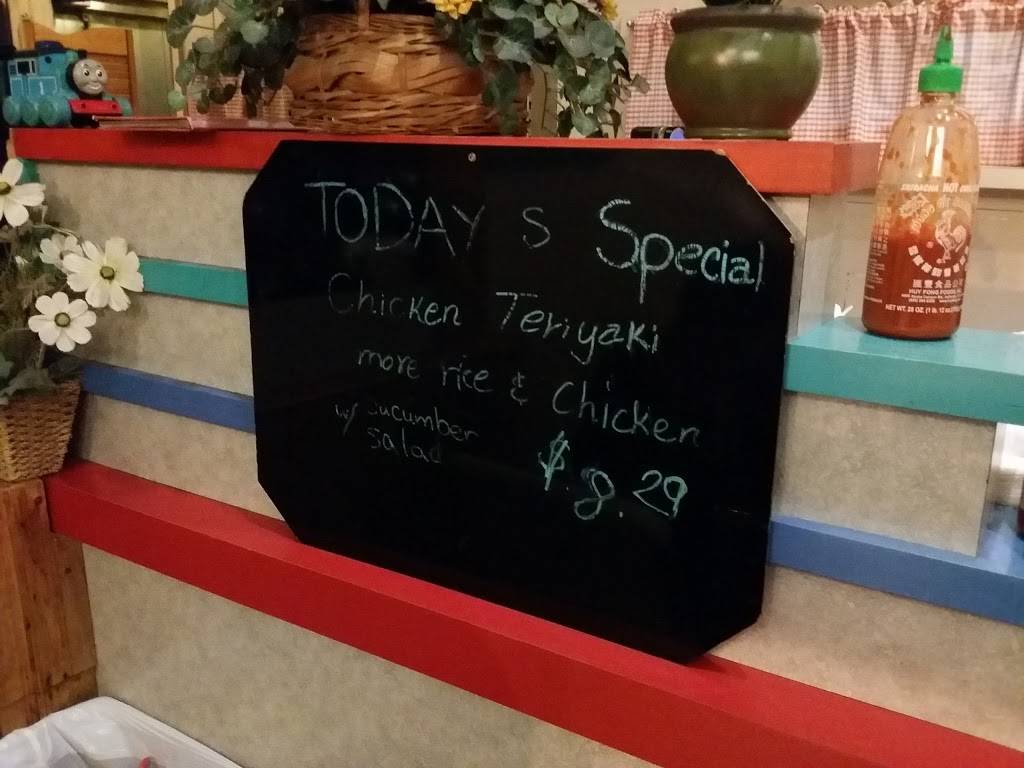 TODAY S Special
Chicken Teriyaki
more rice & Chicken
w/ cucumber
salad
$8.29
SRIRACHA HOT
HUY FONG FOODS, INC.
NET WT. 28 OZ (1 lb. 12 oz